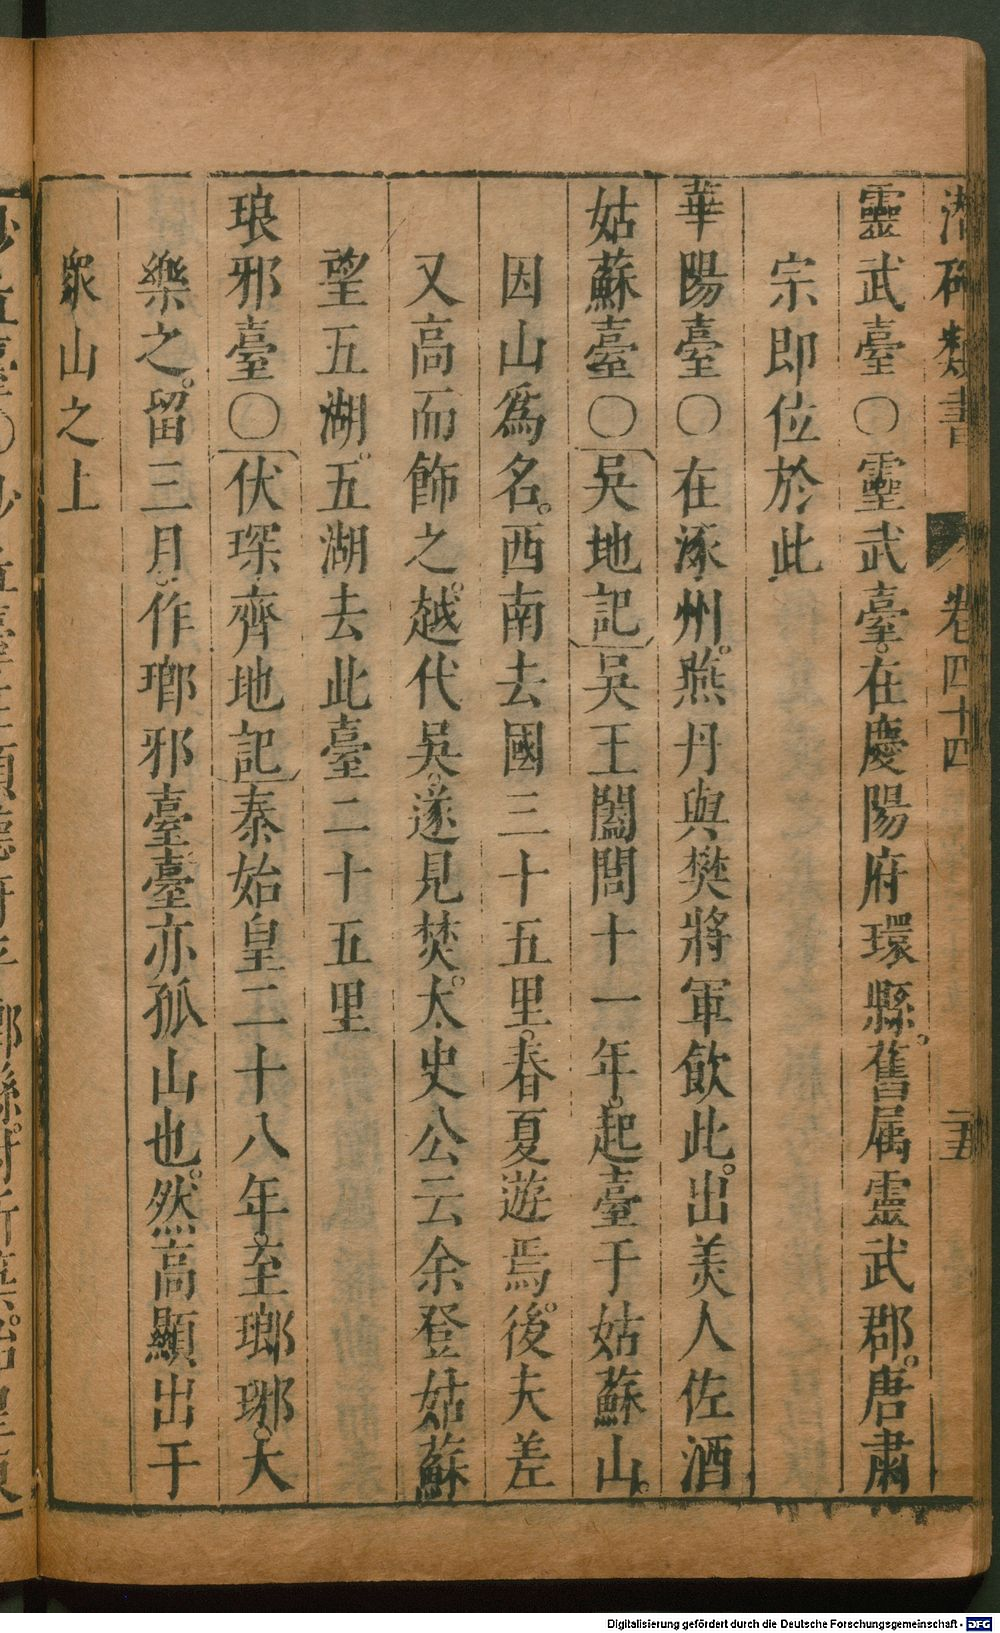 潛確類書 卷四十四 二五
靈武臺○靈武臺在慶陽府環縣舊屬靈武郡唐肅
宗即位於此
華陽臺○在涿州燕丹與樊將軍飲此出美人佐酒
姑蘇臺○吳地記吳王闔閭十一年起臺于姑蘇山
因山爲名西南去國三十五里春夏遊焉後夫差
又高而飾之越伐吳遂見焚太史公云余登姑蘇
望五湖五湖去此臺二十五里
琅邪臺○伏琛齊地記秦始皇二十八年至瑯琊大
樂之留三月作瑯邪臺臺亦孤山也然高顯出于
衆山之上
Digitalisierung gefördert durch die Deutsche Forschungsgemeinschaft - DFG